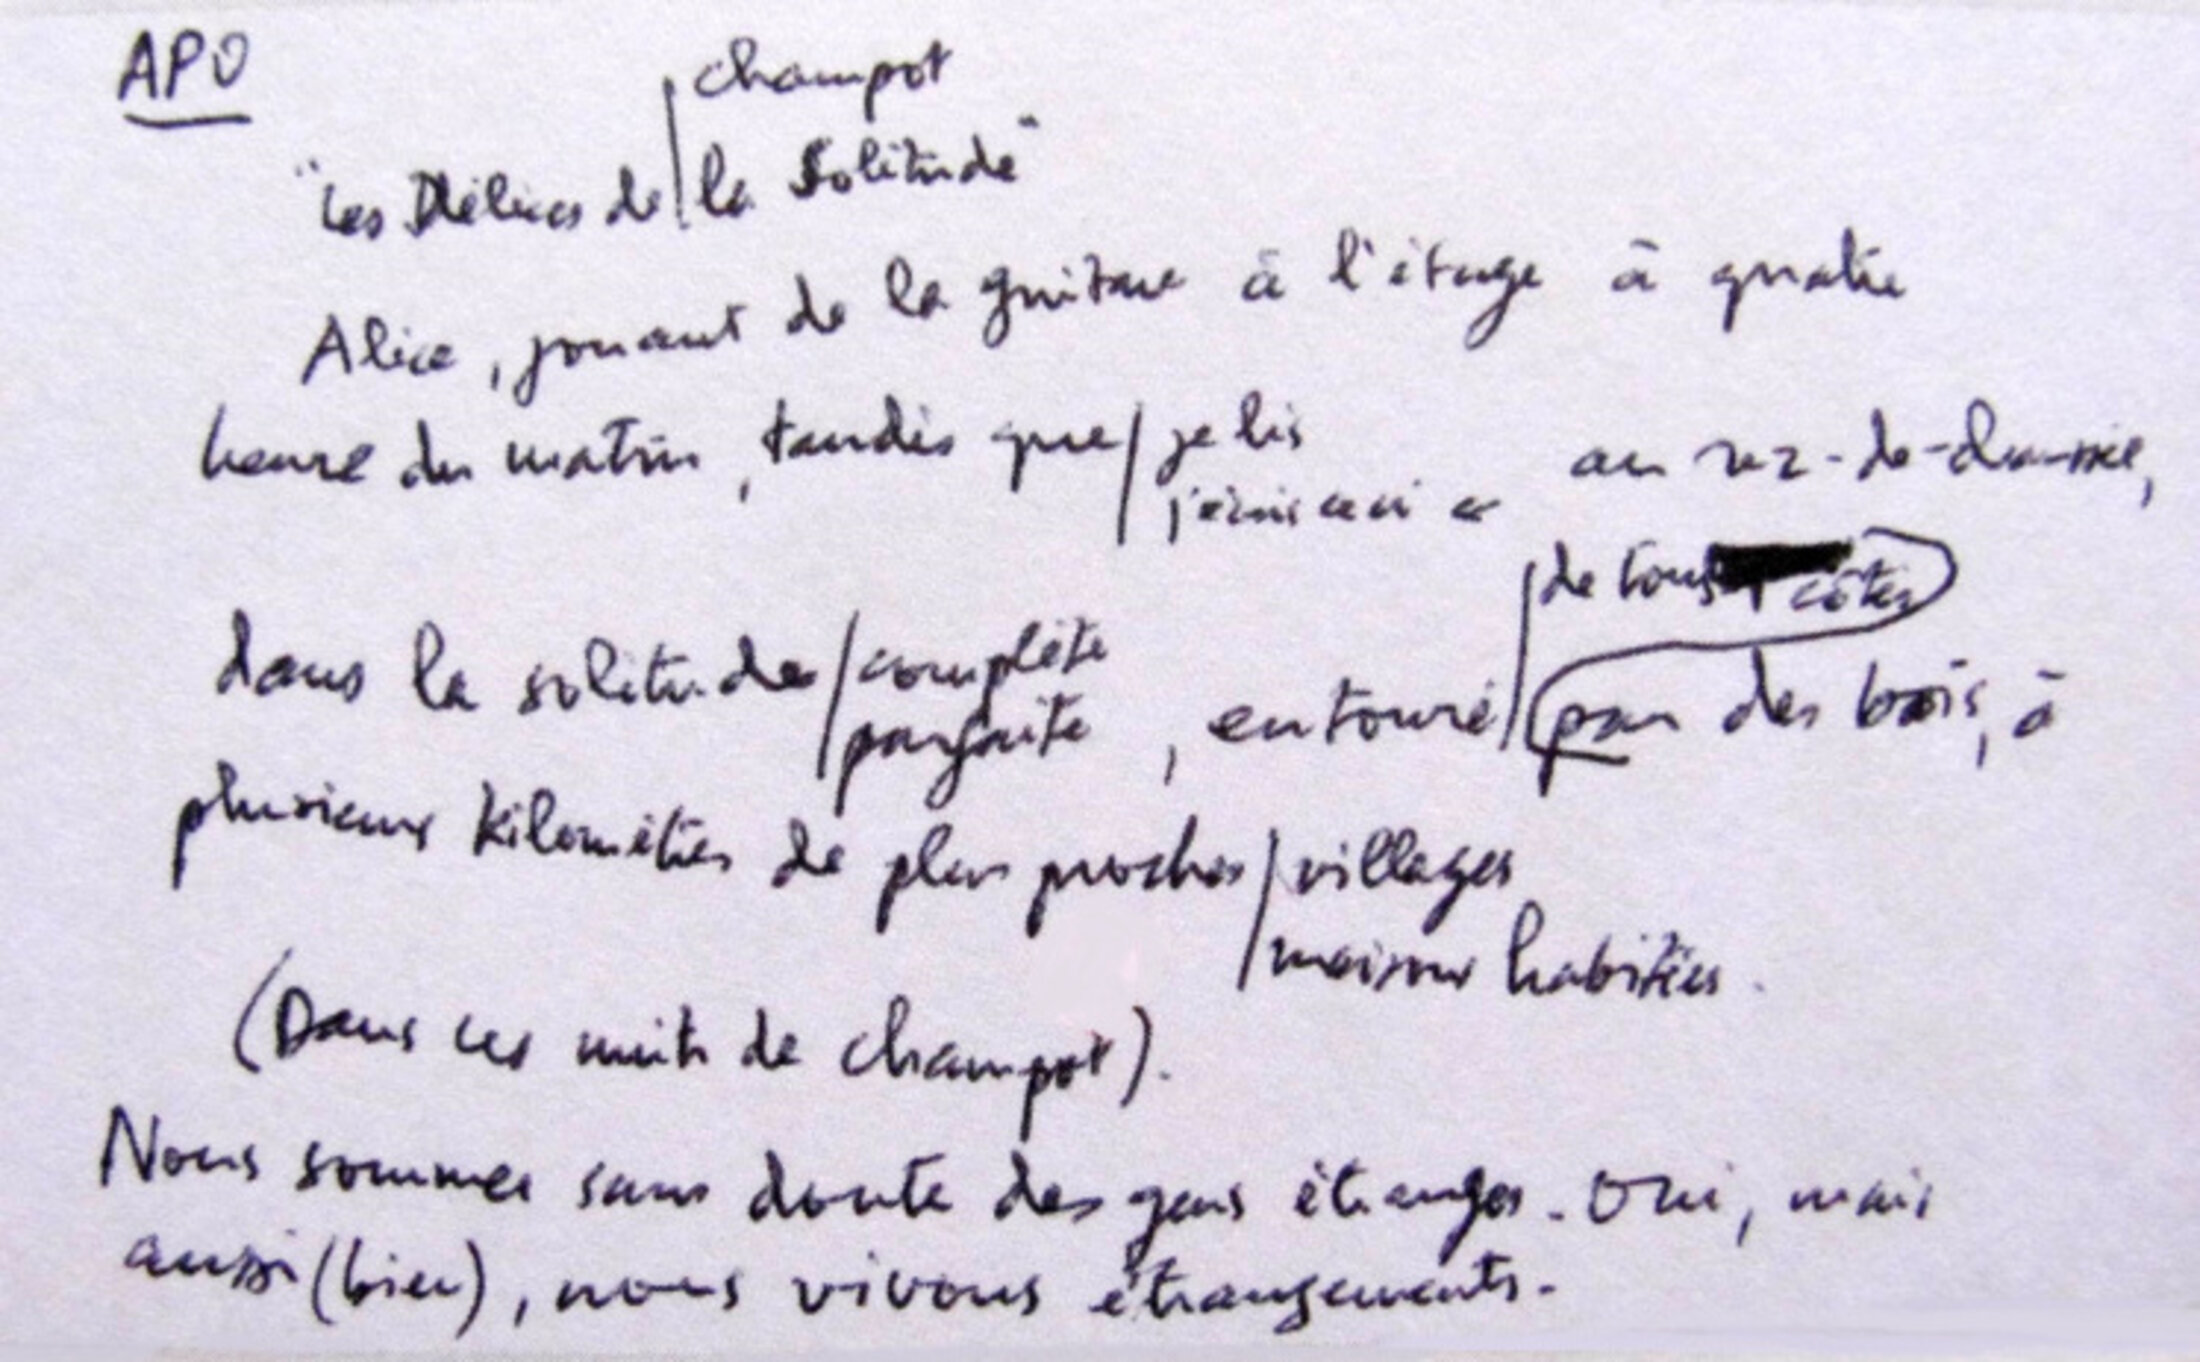 APO
champot
"Les Délices de la Solitude"
Alice, jouant de la guitare à l'étage à quatre
heure du matin, tandis que je lis au rez-de-chaussée,
j'écris ceci
de tous côtés
dans la solitude complète
parfaite, entouré par des bois, à
plusieurs kilomètres de plus proches villages
maisons habitées.
(Dans les nuits de champot).
Nous sommes sans doute des gens étranges. Oui, mais
aussi (bien), nous vivons étrangements.